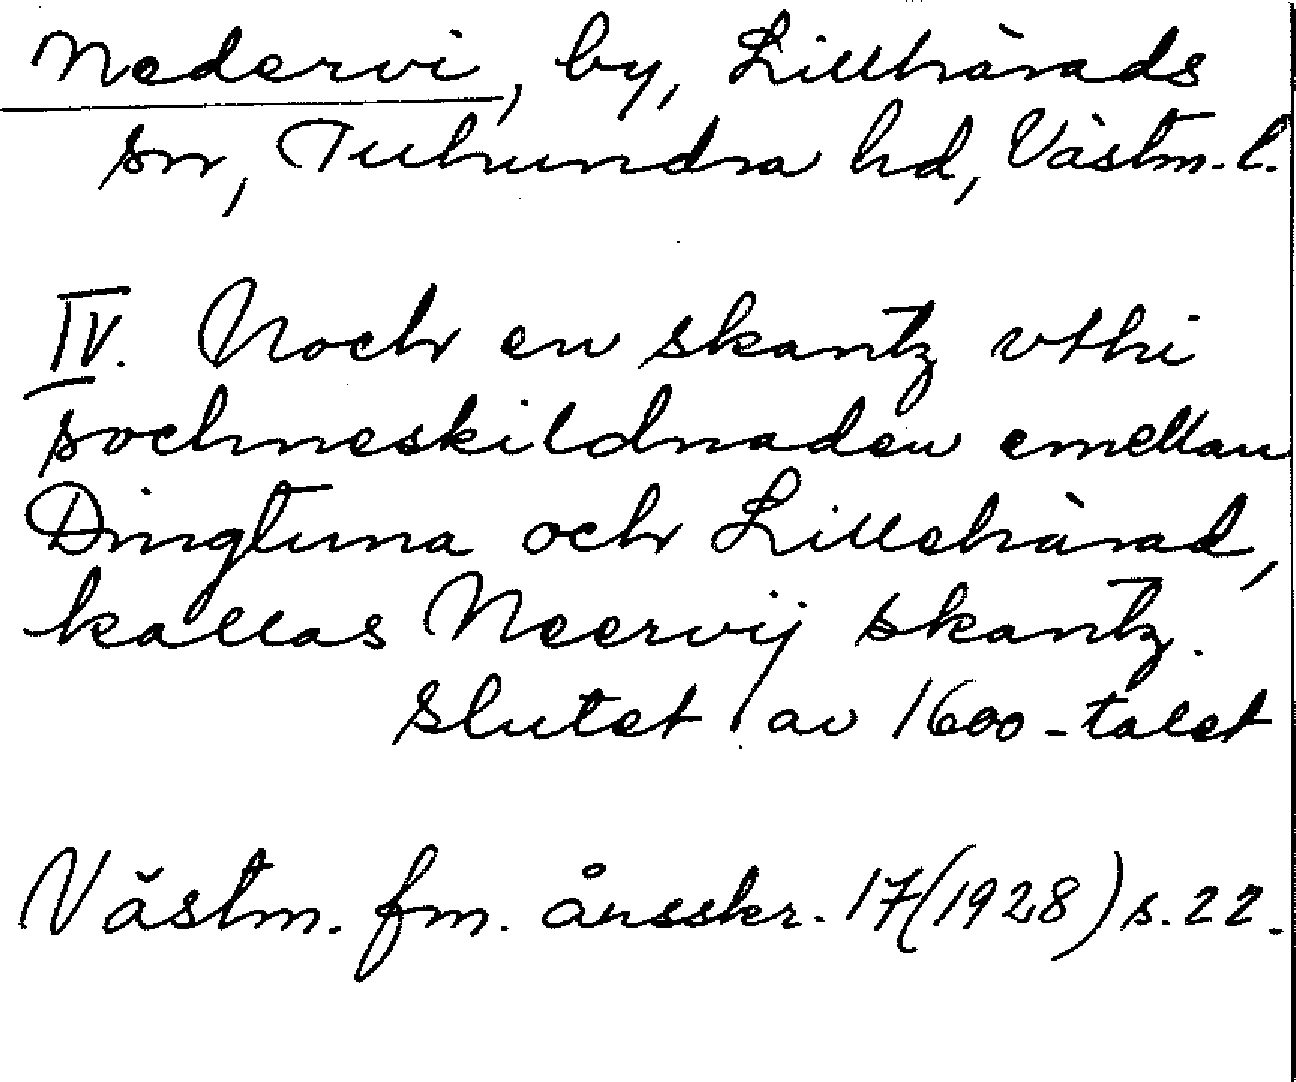 Nedervi, by, Lillhärads
sn, Tuhundra hd, Västm. l.
IV. Noch en skantz vthi
sochneskildnaden emellan
Dingtuna och Lillehärad,
kallas Neervij skantz.
Slutet av 1600-talet
Västm. fm. årsskr. 17 (1928) s. 22.